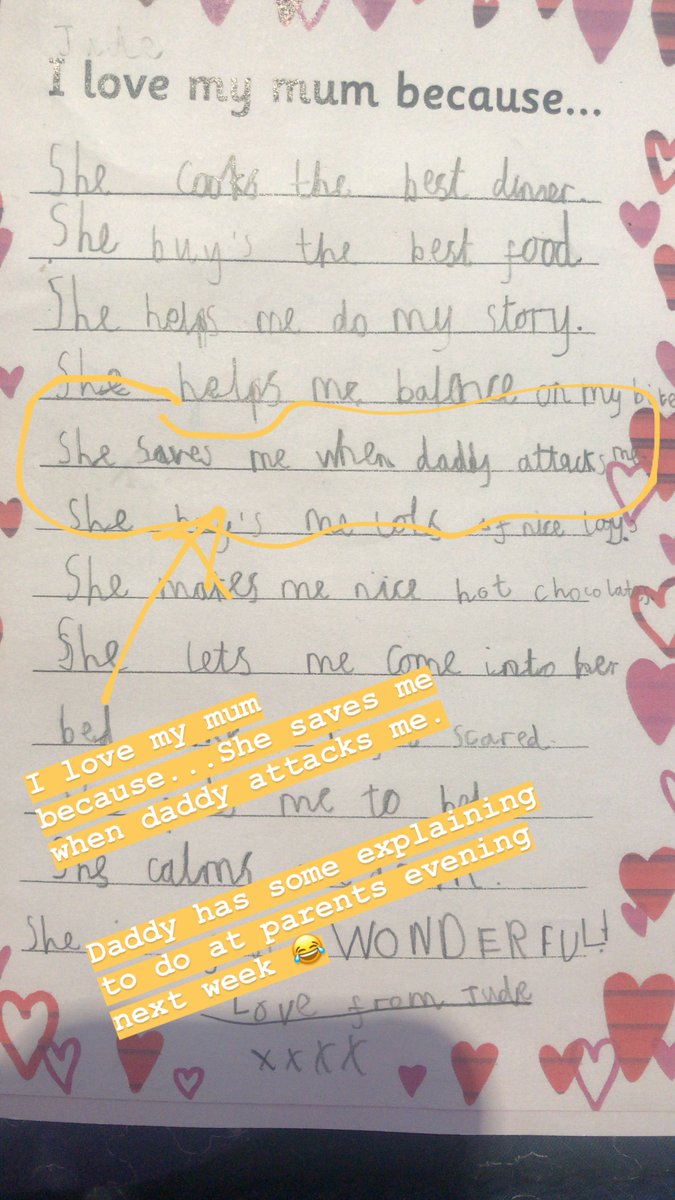 Jude
I love my mum because...
She cooks the best dinner.
She buy's the best food
She helps me do my story.
She helps me balance on my bike
She saves me when daddy attacks me
She buy's me lots of nice toys
She makes me nice hot chocolates
She lets me come into her
bed scared.
me to bed
She calms
She WONDERFUL!
Love from Jude
xxxx
I love my mum
because...She saves me
when daddy attacks me.
Daddy has some explaining
to do at parents evening
next week 😂